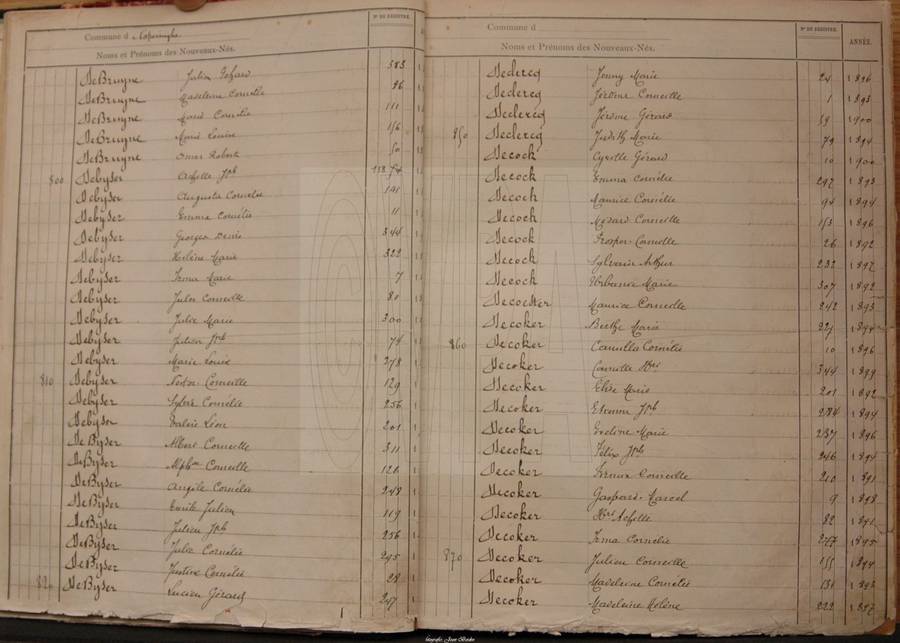 Commune d
Noms et Prénoms des Nouveaux-Nés.
N° DU REGISTRE.
DeBruyne Julien 383
DeBruyne Madeleine Cornélie 86
DeBruyne Marie Cornélie 111
DeBruyne Marie Louise 156
DeBruyne Omer Robert 50
800 Debyser Achille Jph
Debyser Augusta Cornélie 141
Debyser Emma Cornélie 11
Debyser Georges Denis 344
Debyser Hélène Marie 322
Debyser Irma Marie 7
Debyser Jules Corneille 80
Debyser Julie Marie 300
Debyser Julien Jph 74
Debyser Marie Louise 278
810 Debyser Nestor Corneille 129
Debyser Sylvie Cornélie 256
Debyser Valère Léon 201
DeByser Albert Corneille 311
DeByser Alph. Corneille 126
DeByser Angèle Cornélie 248
DeByser Emile Julien 119
DeByser Julien Jph 256
DeByser Julie Cornélie 295
DeByser Justine Cornélie 28
820 DeByser Lucien Gérard 247
Commune d
Noms et Prénoms des Nouveaux-Nés.
N° DU REGISTRE.
ANNÉE.
Declercq Jenny Marie 24 1896
Declercq Jérôme Corneille 1 1893
Declercq Jérôme Gérard 59 1900
850 Declercq Judith Marie 79 1894
Decock Cyrille Gérard 10 1900
Decock Emma Cornélie 297 1893
Decock Maurice Cornélie 94 1894
Decock Médard Corneille 153 1896
Decock Prosper Corneille 26 1892
Decock Sylvain Arthur 232 1897
Decock Urbanie Marie 307 1892
Decoester Maurice Corneille 242 1893
Decoker Berthe Marie 227 1894
860 Decoker Camilla Cornélie 10 1896
Decoker Camille Hri 344 1899
Decoker Elise Marie 201 1892
Decoker Etienne Jph 284 1894
Decoker Eveline Marie 237 1896
Decoker Félix Jph 246 1894
Decoker Firmin Corneille 210 1891
Decoker Gaspard Marcel 9 1898
Decoker Hri Achille 82 1891
Decoker Irma Cornélie 277 1895
870 Decoker Julien Corneille 155 1894
Decoker Madeleine Cornélie 131 1893
Decoker Madeleine Hélène 222 1897